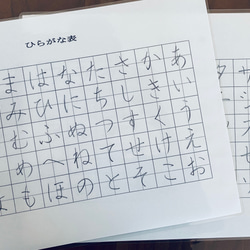 ひらがな表
あいうえお
かきくけこ
さしすせそ
たちつてと
なにぬねの
はひふへほ
まみむめも